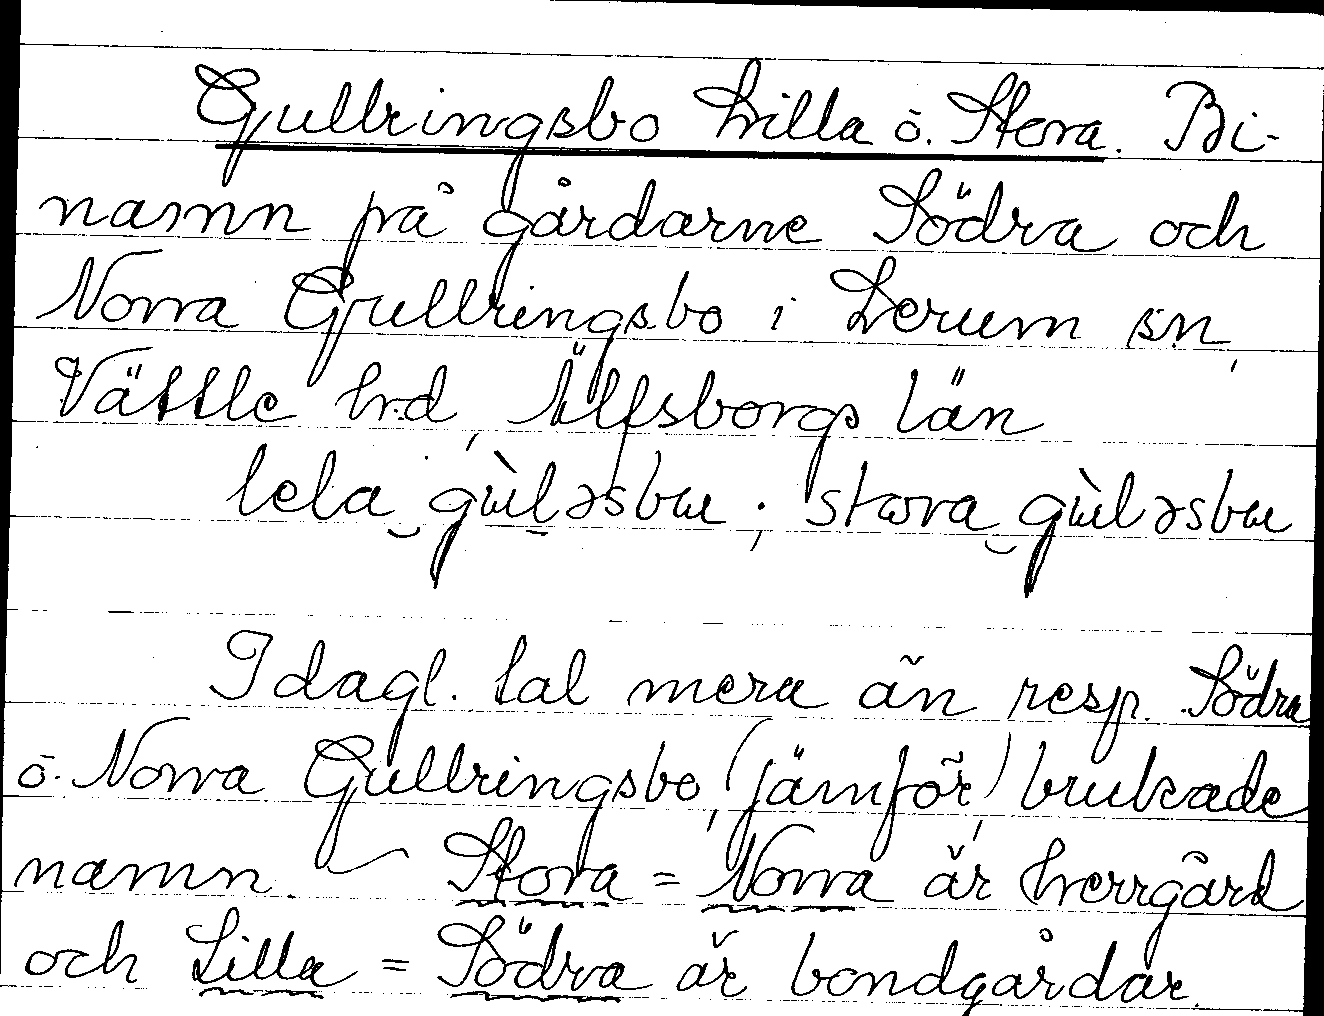 Gullringsbo Lilla o. Stora. Bi-
namn på gårdarne Södra och
Norra Gullringsbo i Lerum sn,
Vättle hd, Älfsborgs län
lela‿gùləsbɯ ; stora‿gùləsbɯ
I dagl. tal mera än resp. Södra
o. Norra Gullringsbo, (jämför) brukade
namn. — Stora = Norra är herrgård
och Lilla = Södra är bondgårdar.